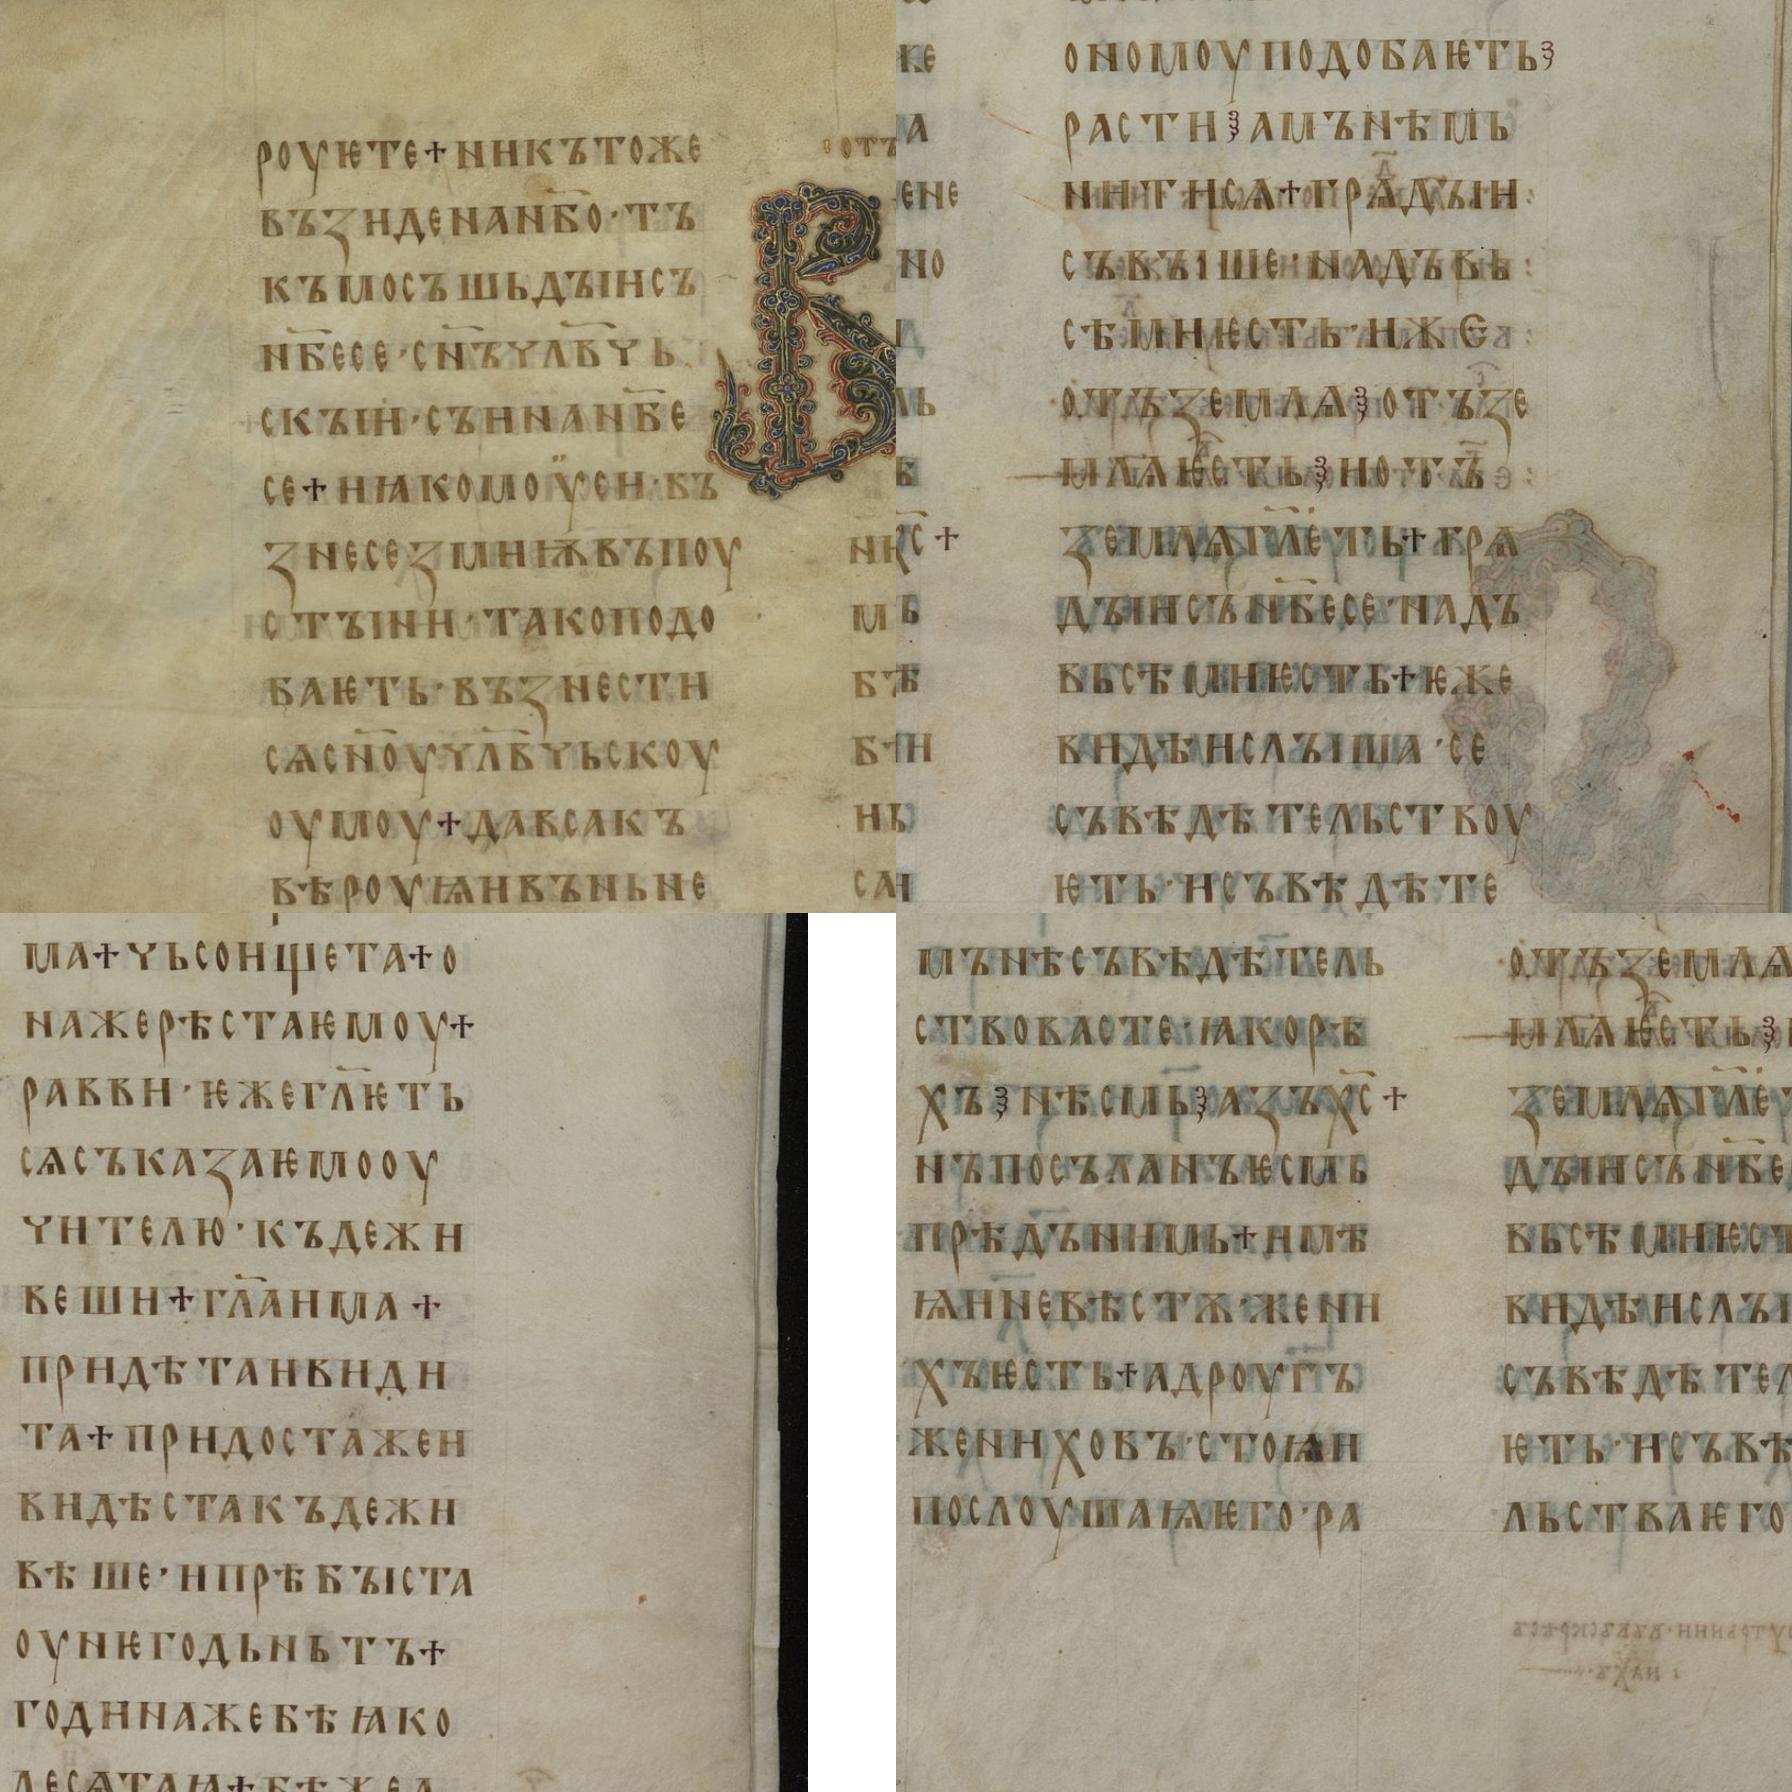 роуѥте+никътоже
възиденан҃бо·тъ
къмосъшьдъіисъ
н҃бесе·сн҃ъчл҃бчь
скъіи·съінан҃бе
се+иꙗкомоѵ̈сеи·въ
знесезмиѭвъпоу
стъіни·такоподо
баѥть·възнести
сѧсн҃оучл҃бчьскоу
оумоу+давсакъ
вѣроуѩивъньне
ономоуподобаѥтьꙁ
растиꙁамънѣмь
нитисѧ+грѧдъіи
съвъіше·надъвь
сѣмиѥсть·иже
отъземлѧꙁотъзе
млѧѥстьꙁиотъ
землѧгл҃еть+грѧ
дъіисън҃бесе·надъ
вьсѣмиѥсть+ѥже
видѣислъіша·се
съвѣдѣтельствоу
ѥть·исъвѣдѣте
ма+чьсоищета+о
нажерѣстаѥмоу+
равви·ѥжегл҃ѥть
сѧсъказаѥмооу
чителю·къдежи
веши+гл҃аима+
придѣтаивиди
та+придостажеи
видѣстакъдежи
вѣше·ипрѣбъіста
оунѥгодьньтъ+
годинажебѣꙗко
десѧтаꙗ+бѣжеа
мънѣсъвѣдѣтель
ствовасте·ꙗкорѣ
хъꙁнѣсмьꙁазъх҃с+
нъпосъланъѥсмь
прѣдънимь+имѣ
ѩиневѣстѫ·жени
хъѥсть+адроугъ
жениховъ·стоѩи
послоушаѩѥго·ра
отъземлѧ
млѧѥстьꙁ
землѧгл҃е
дъіисън҃бе
вьсѣмиѥст
видѣислъі
съвѣдѣтел
ѥть·исъвѣ
льстваѥго